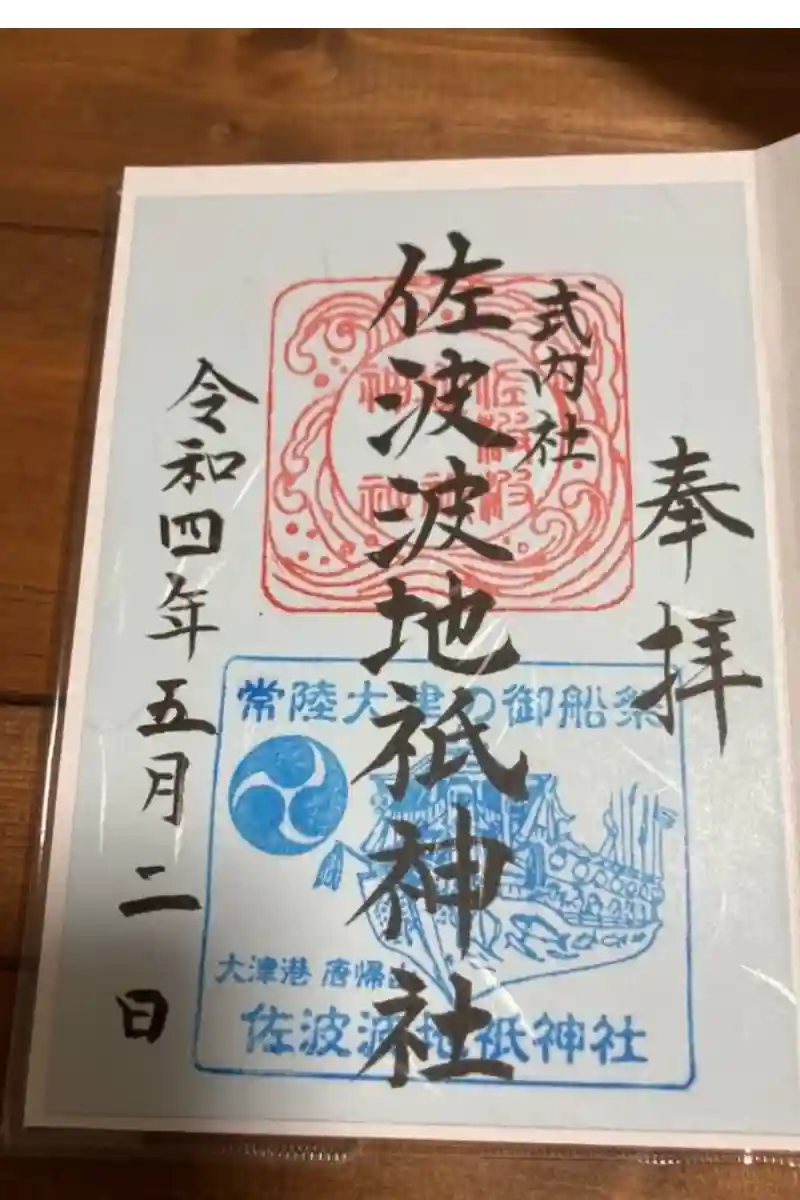 奉拝
式内社
佐波波地祇神社
令和四年五月二日
常陸大津の御船祭
大津港 唐帰山
佐波波地祇神社